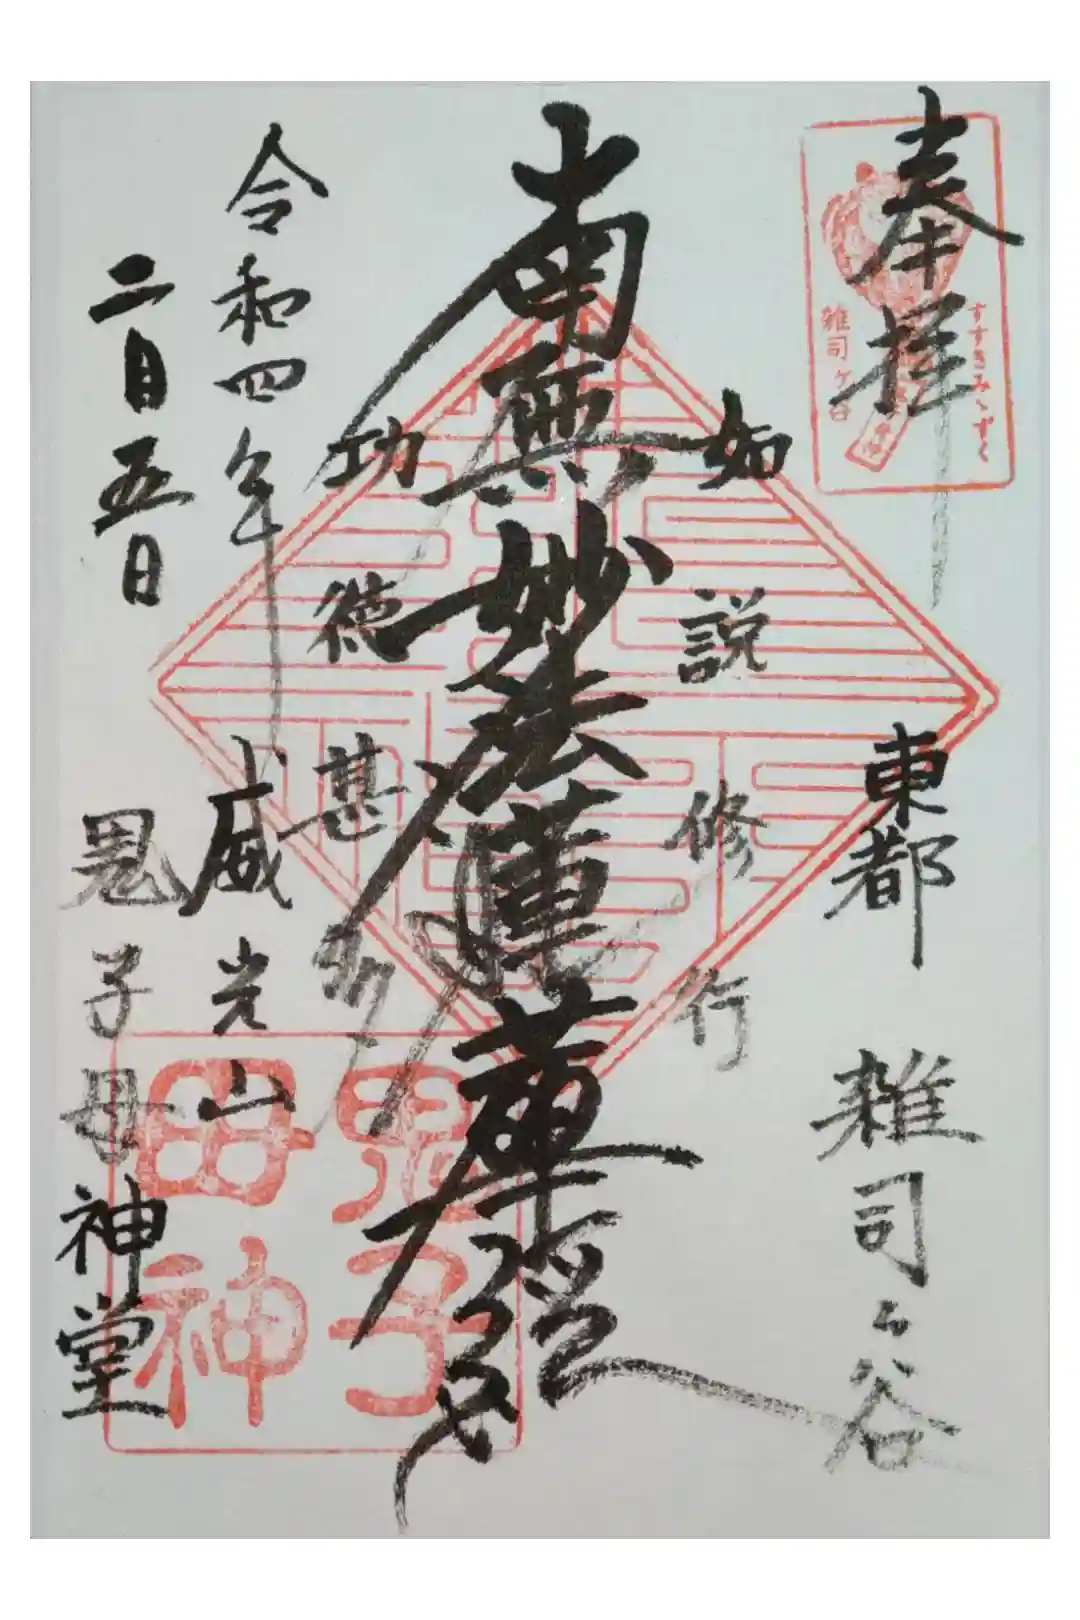 奉拝
すすきみゝずく
雑司ヶ谷
東都 雑司ヶ谷
如説修行
南無妙法蓮華経
功徳甚
令和四年
二月五日
威光山
鬼子母神堂
鬼子
母神